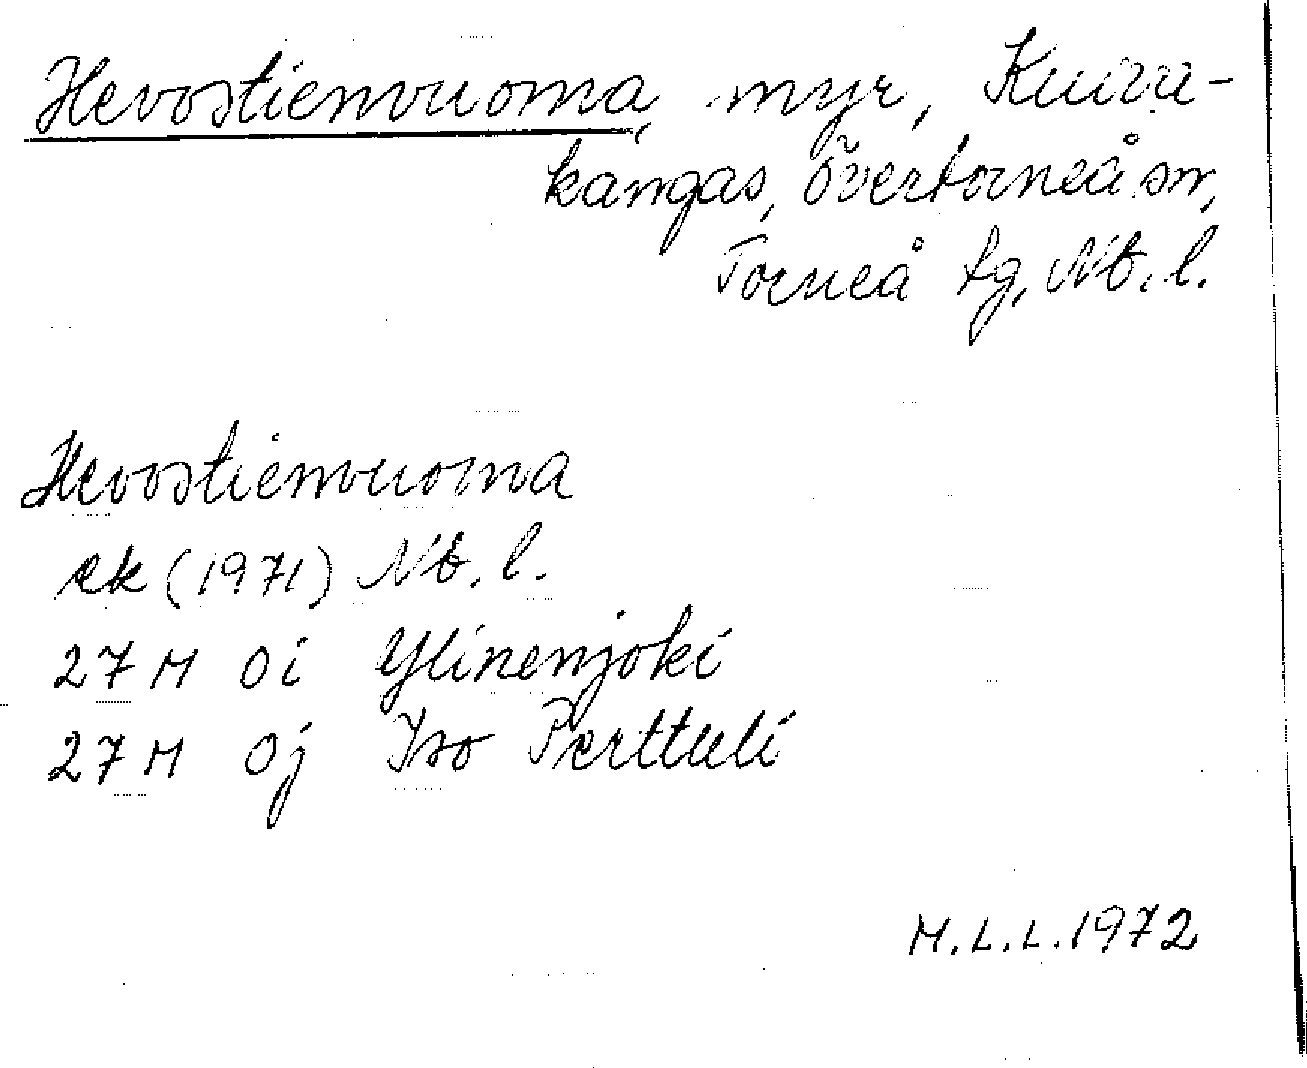 Hevostienvuoma, myr, Kuiva-
kangas, Övertorneå sn,
Torneå tg, Nb. l.
Hevostienvuoma
ek (1971) Nb. l.
27 M 0i Ylinenjoki
27 M 0j Iso Perttuli
M.L.L. 1972